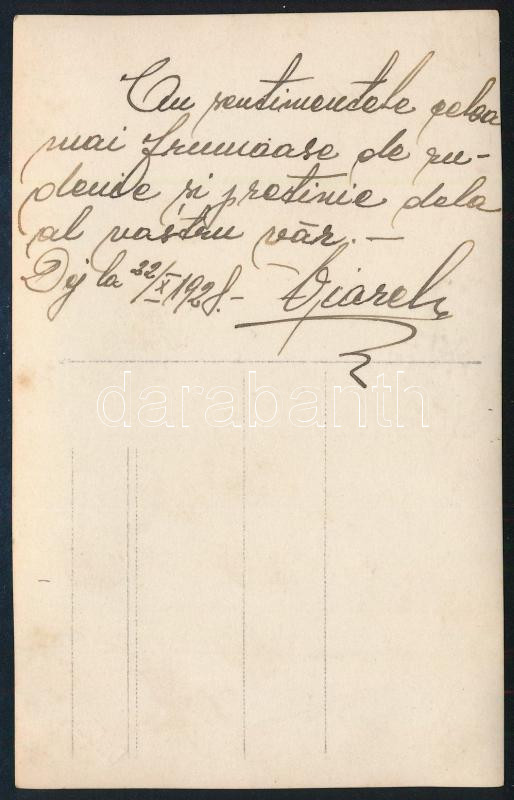 Cu sentimentele celea
mai frumoase de ru-
denie și pretinie dela
al vostru văr. —
Dej la 22/X 1928. — Viorel
darabanth